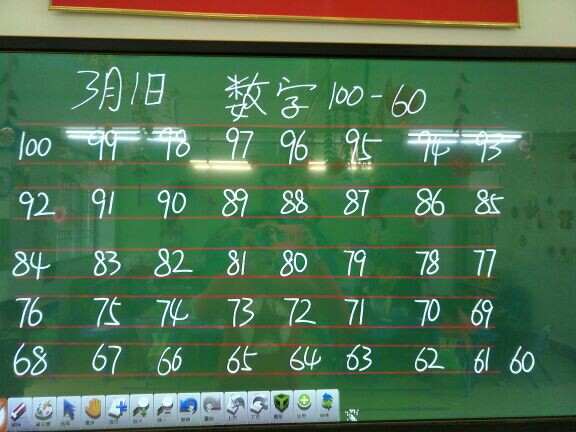 3月1日 数字 100-60
100 99 98 97 96 95 94 93
92 91 90 89 88 87 86 85
84 83 82 81 80 79 78 77
76 75 74 73 72 71 70 69
68 67 66 65 64 63 62 61 60